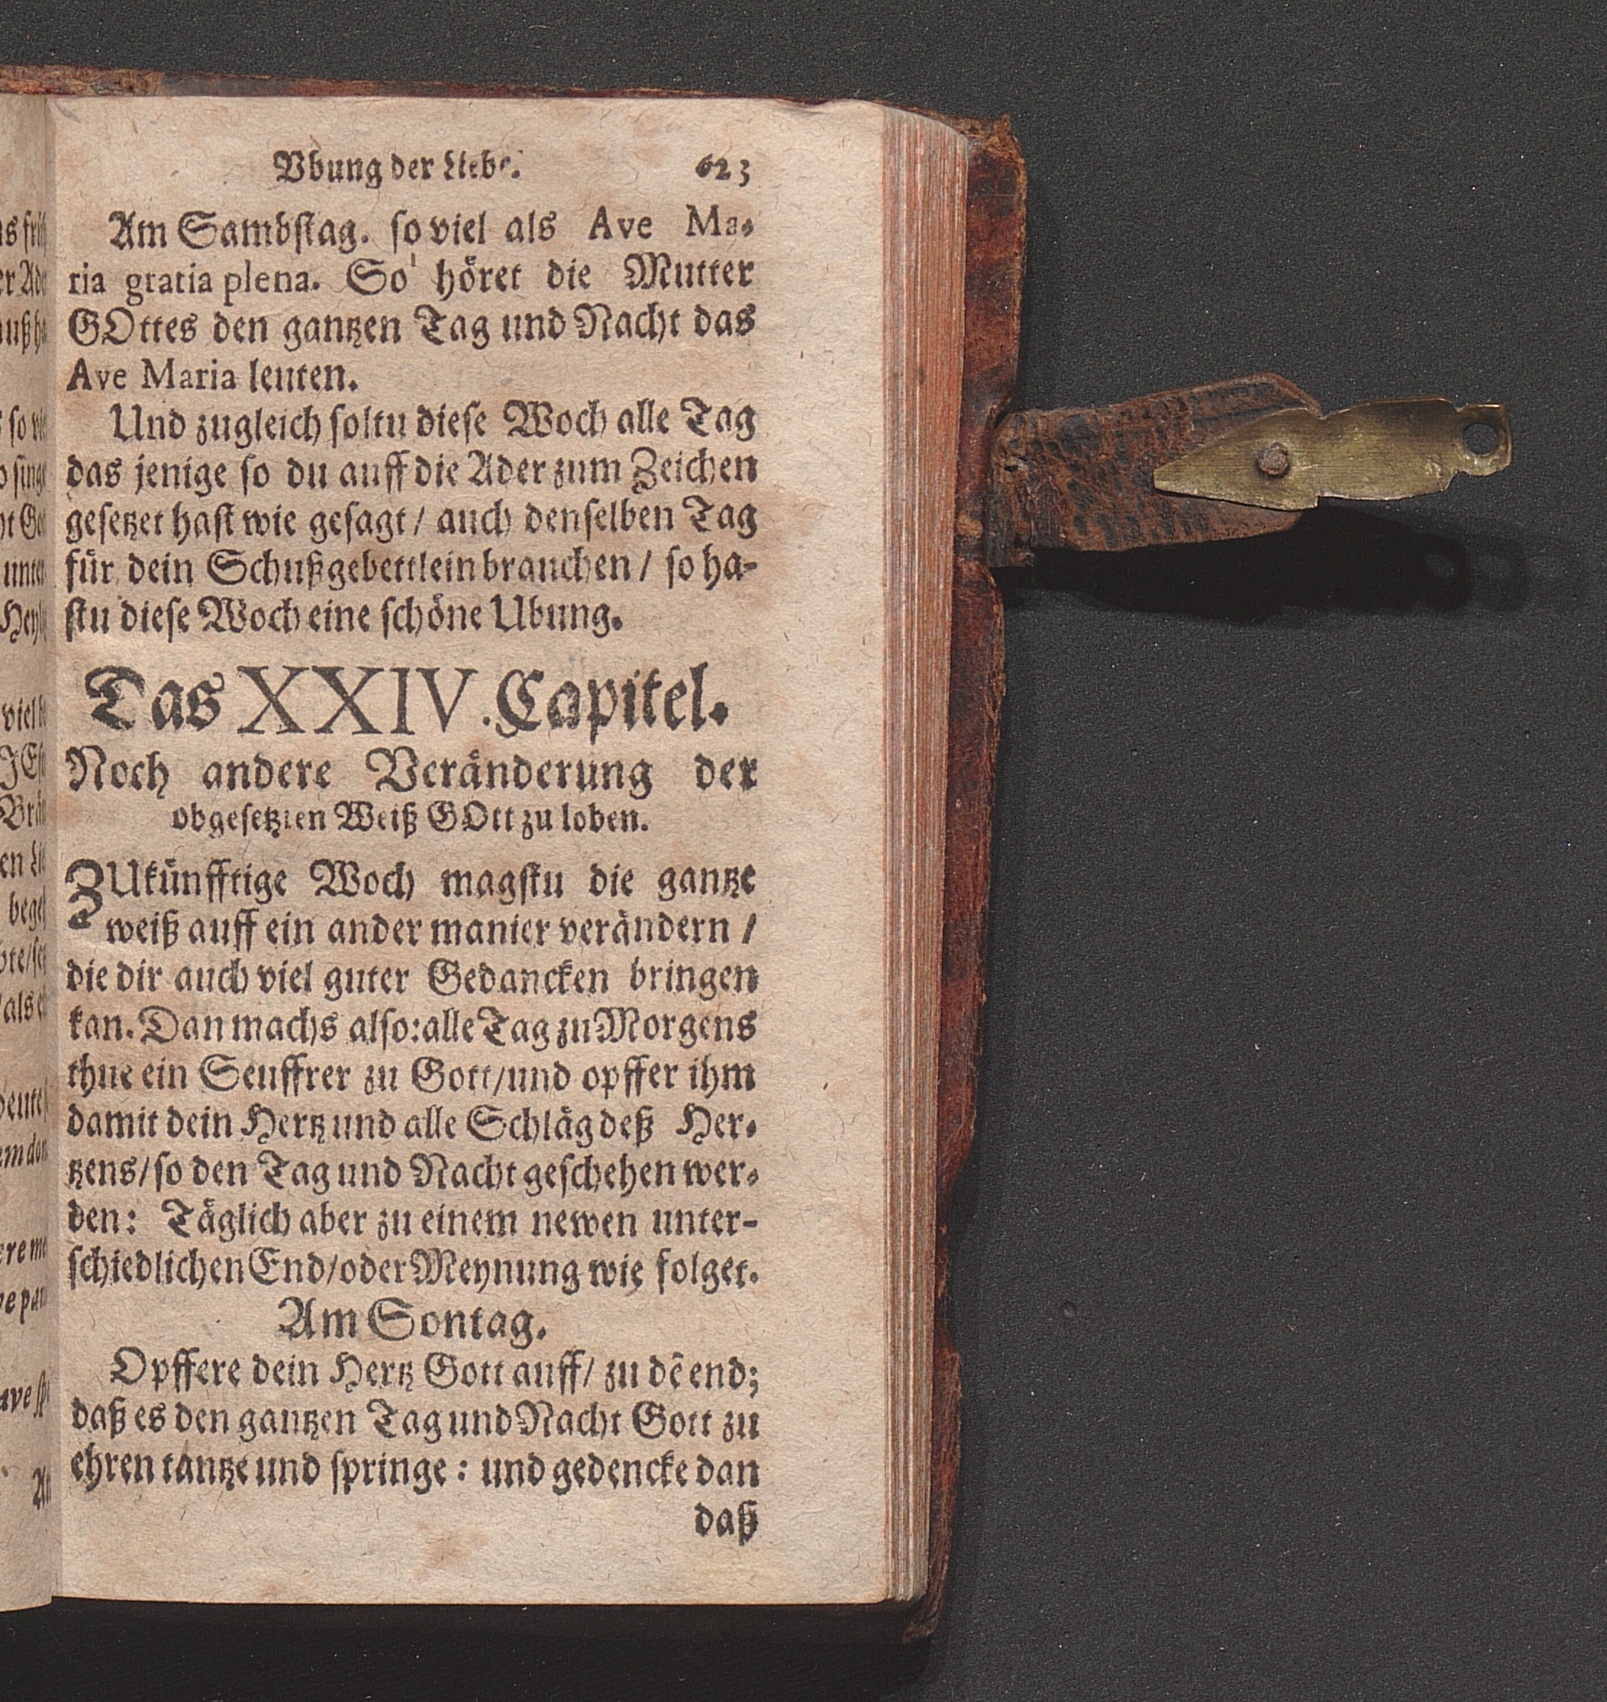 Vbung der Liebe. 623
Am Sambſtag. ſo viel als Ave Ma-
ria gratia plena. So höret die Mutter
GOttes den gantzen Tag und Nacht das
Ave Maria leuten.
Und zugleich ſoltu dieſe Woch alle Tag
das jenige ſo du auff die Ader zum Zeichen
geſetzet haſt wie geſagt / auch denſelben Tag
für dein Schußgebettlein brauchen / ſo ha-
ſtu dieſe Woch eine ſchöne Ubung.
Das XXIV. Capitel.
Noch andere Veränderung der
obgeſetzten Weiß GOtt zu loben.
ZUkünfftige Woch magſtu die gantze
weiß auff ein ander manier verändern /
die dir auch viel guter Gedancken bringen
kan. Dan machs alſo: alle Tag zu Morgens
thue ein Seufftzer zu Gott / und opffer ihm
damit dein Hertz und alle Schläg deß Her-
tzens / ſo den Tag und Nacht geſchehen wer-
den: Täglich aber zu einem newen unter-
ſchiedlichen End / oder Meynung wie folget.
Am Sontag.
Opffere dein Hertz Gott auff / zu dē end;
daß es den gantzen Tag und Nacht Gott zu
ehren tantze und ſpringe: und gedencke dan
daß